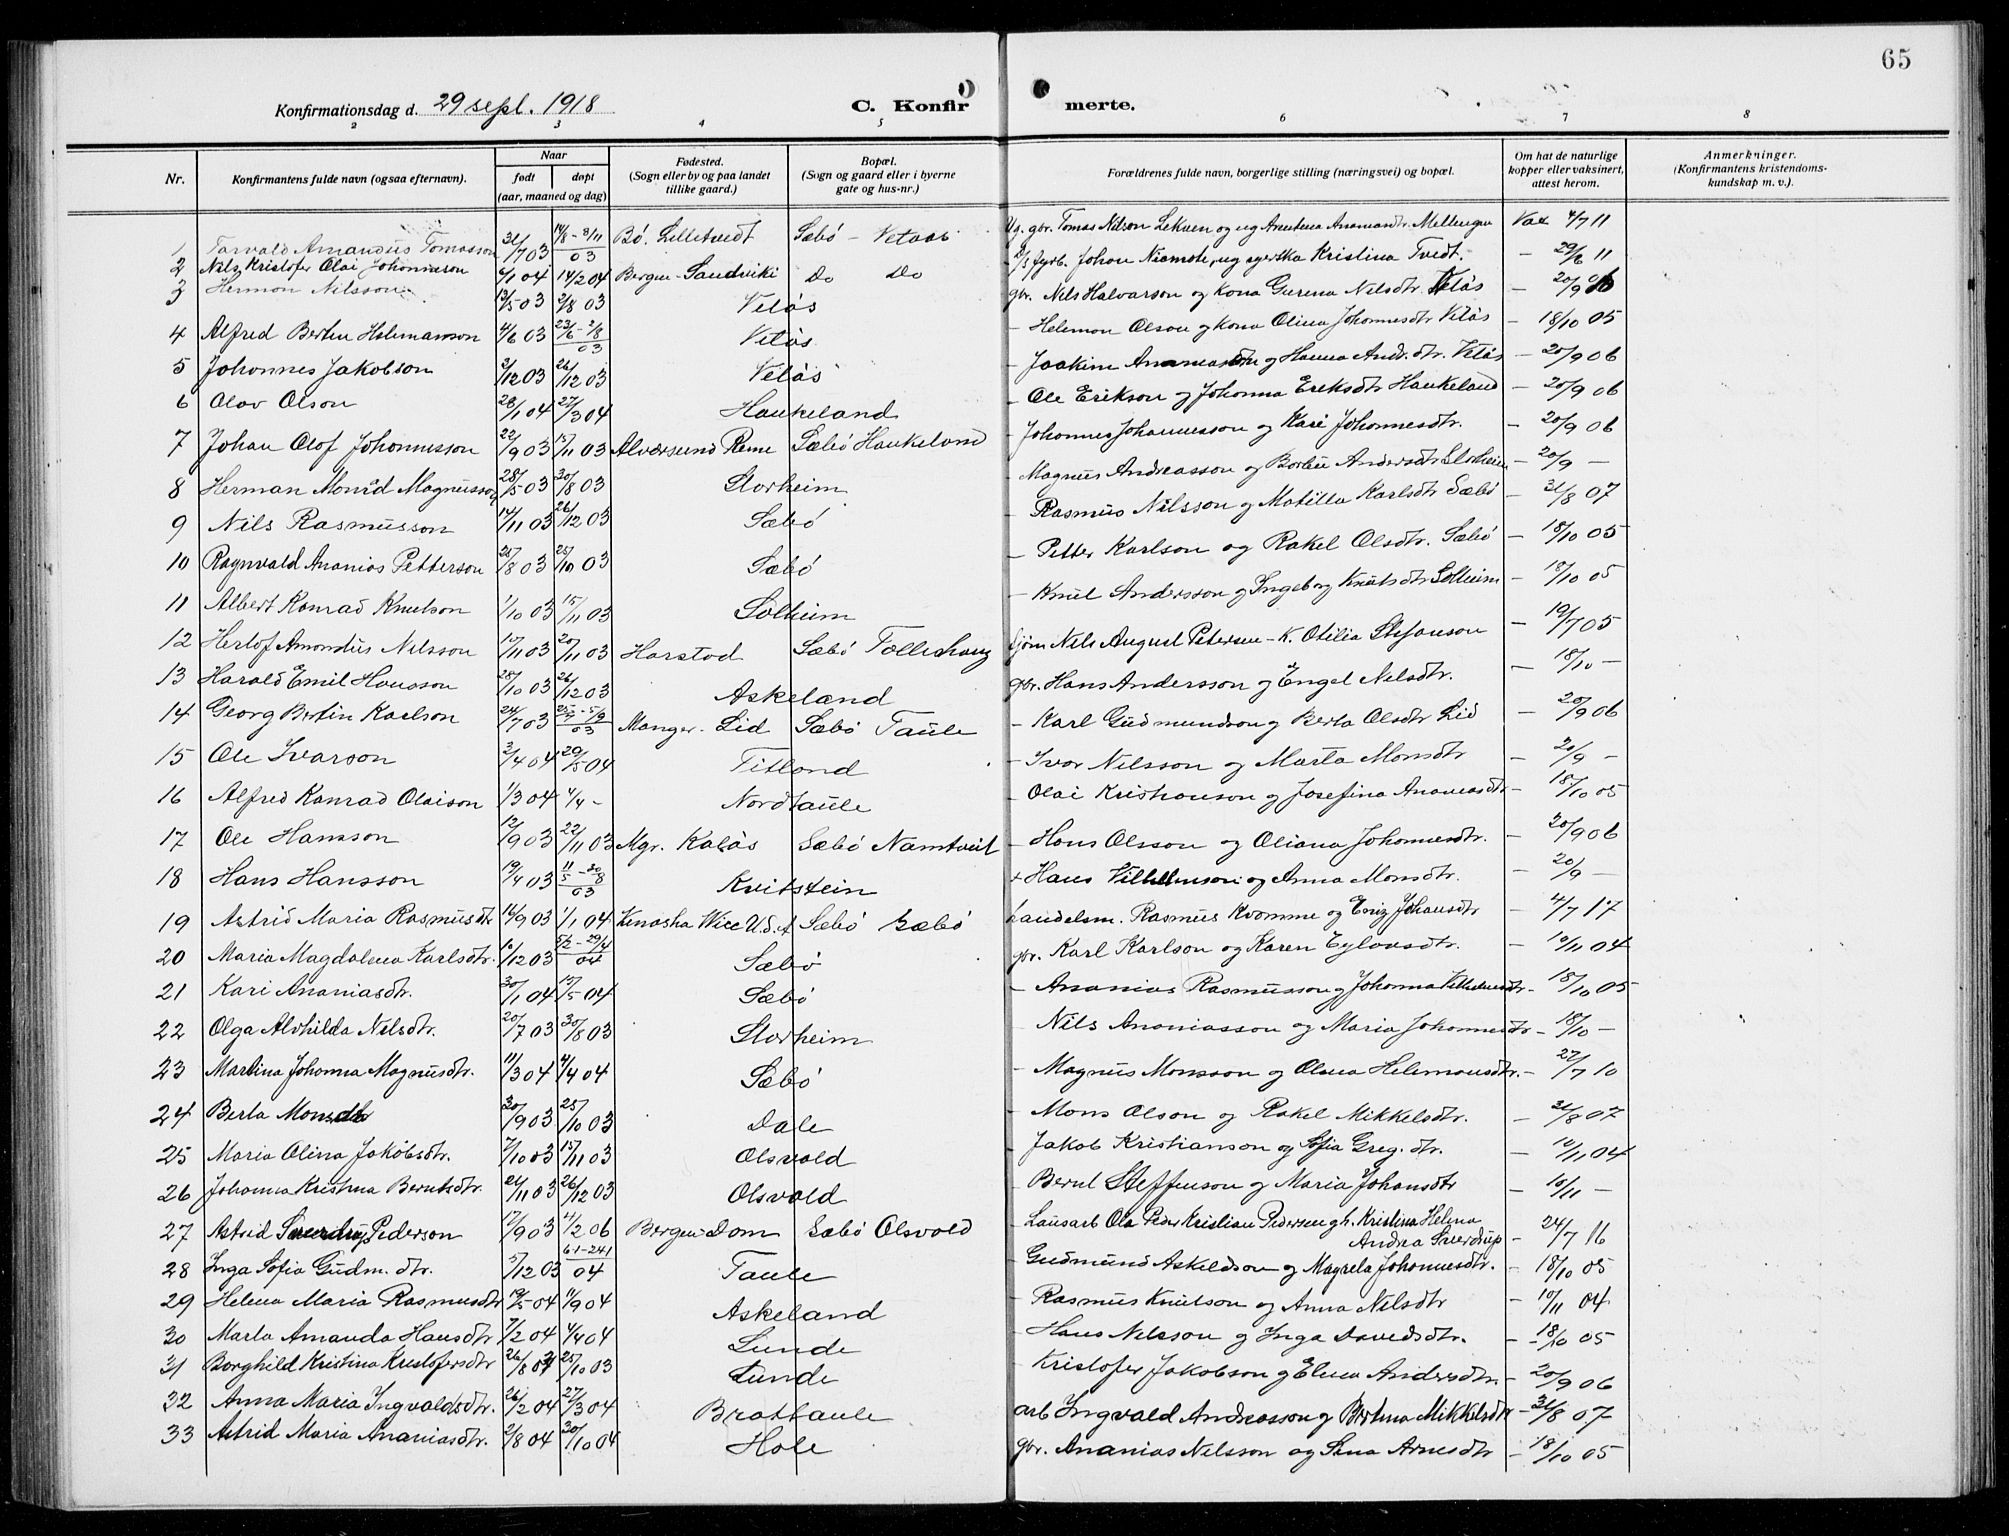 65
Konfirmationsdag d. 29 sept. 1918
C. Konfir merte.
2 3 4 5 6 7 8
Nr. Konfirmantens fulde navn (ogsaa efternavn). Naar født døpt (aar, maaned og dag) Fødested. (Sogn eller by og paa landet tillike gaard.) Bopæl. (Sogn og gaard eller i byerne gate og hus-nr.) Forældrenes fulde navn, borgerlige stilling (næringsvei) og bopæl. Om hat de naturlige kopper eller vaksinert, attest herom. Anmerkninger. (Konfirmantens kristendoms-kundskap m. v.).
1 Torvald Amandus Tomasson 31/7 03 Bö. Lilletvedt Sæbö - Vetaas gbr. Tomas Nilson Vax 4/7 11
2 Nils Kristofer Olai Johannesson 6/1 04 14/2 04 Bergen - Sandviki Do Do Johan Kristina Tvedt. - 29/6 11
3 Hermon Nilsson 13/5 03 2/8 03 Vetås gbr. Nils Halvarson og kona Gurena Nilsdtr. Vetås - 20/9 06
4 Alfred Bertin Helemanson 4/6 03 Vetås - Helemon Olson og kona Olina Johannesdtr Vetås - 18/10 05
5 Johannes Jakobson 2/12 03 26/12 03 Vetås - Joakim og Hanna And. dtr. Vetås - 20/9 06
6 Olav Olson 28/1 04 27/3 04 Haukeland - Ole Erikson og Johanna Eriksdtr Haukeland - 20/9 06
7 Johan Olof Johannesson 22/9 03 15/11 03 Alversund Reme Sæbö Haukeland - Johannes Johannesson og Kari Johannesdtr. - 20/9 06
8 Herman Monrad Magnusson 28/5 03 30/8 03 Storheim - Magnus Andreasson og Andersdtr Storheim - 20/9 -
9 Nils Rasmusson 14/11 03 26/12 03 Sæbö - Rasmus Nilsson og Matilla Karlsdtr Sæbö - 31/8 07
10 Ragnvald Ananias Petterson 25/8 03 25/10 03 Sæbö - Petter Karlson og Rakel Olsdtr. Sæbö - 18/10 05
11 Albert Konrad Knutson 1/10 03 15/11 03 Solheim - Knut Andersson og Ingeborg Knutsdtr Solheim - 18/10 05
12 Herlof Amondus Nilsson 10/11 03 20/11 03 Harstad Sæbö Tolleshaug Sjöm Nils August Petersen - K. Otilia Stefanson - 19/7 05
13 Harald Emil Hansson 28/10 03 26/12 03 Askeland gbr. Hans Andersson og Engel Nilsdtr. - 18/10 -
14 Georg Bertin Karlson 24/7 03 Manger - Lid Sæbö Taule - Karl Gudmundson og Berta Olsdtr Lid - 20/9 06
15 Ole Ivarson 2/4 04 29/5 04 Titland - Ivar Nilsson og Marta Monsdtr - 20/9 -
16 Alfred Konrad Olaison 1/3 04 4/4 - Nordtaule - Olai Kristianson og Josefina Ananiasdtr - 18/10 05
17 Ole Hansson 12/9 03 22/11 03 Mgr. Kalås Sæbö Namtveit - Hans Olsson og Oliana Johannesdtr. - 20/9 06
18 Hans Hansson 19/4 03 Kvitstein + Hans Vilhelmson og Anna Monsdtr. - 20/9 -
19 Astrid Maria Rasmusdtr 14/9 03 1/1 04 Kenosha Wice U.S.A Sæbö Sæbö Landelsm. Rasmus Kvamme og Johansdtr - 4/7 17
20 Maria Magdalena Karlsdtr. 10/12 03 Sæbö gbr. Karl Karlson og Karen - 10/11 04
21 Kari Ananiasdtr. 30/1 04 15/5 04 Sæbö - Ananias Rasmusson og Johanna Vilhelmsdtr - 18/10 05
22 Olga Alvhilda Nilsdtr. 20/7 03 30/8 03 Storheim - Nils Ananiasson og Maria Johannesdtr - 18/10 -
23 Martina Johanna Magnusdtr. 11/3 04 4/4 04 Sæbö - Magnus Monsson og Olena Helemonsdtr. - 27/7 10
24 Berta Monsdtr 20/9 03 25/10 03 Dale - Mons Olson og Rakel Mikkelsdtr. - 31/8 07
25 Maria Olina Jakobsdtr. 7/10 03 15/11 03 Olsvold - Jakob Kristianson og Sofia Greg. dtr. - 10/11 04
26 Johanna Kristina Berntsdtr. 24/11 03 26/12 03 Olsvold - Bernt Steffenson og Maria Johansdtr - 10/11 -
27 Astrid Sverdrup Pederson 17/9 03 4/2 06 Bergen Dom Sæbö Olsvold - Lausarb Ola Peder Kristian Pedersen gh. Kristina Helena
Andrea Sverdrup - 24/7 16
28 Inga Sofia Gudm. dtr. 5/12 03 6/1-24/1 04 Taule - Gudmund Askeldson og Magrela Johannesdtr. - 18/10 05
29 Helena Maria Rasmusdtr 19/5 04 11/9 04 Askeland - Rasmus Knutson og Anna Nilsdtr - 10/11 04
30 Marta Amanda Hansdtr 7/2 04 4/4 04 Lunde - Hans Nilsson og Inga Davidsdtr. - 18/10 05
31 Borghild Kristina Kristofersdtr 26/8 25/10 03 Lunde - Kristofer Jakobson og Elena Andersdtr. - 20/9 06
32 Anna Maria Ingvaldsdtr. 26/2 04 27/3 04 Brattaule arb Ingvald Andreasson og Bertina Mikkelsdtr - 31/8 07
33 Astrid Maria Ananiasdtr. 2/8 04 30/10 04 Hole gbr. Ananias Nilsson og Sina Arnesdtr - 18/10 05